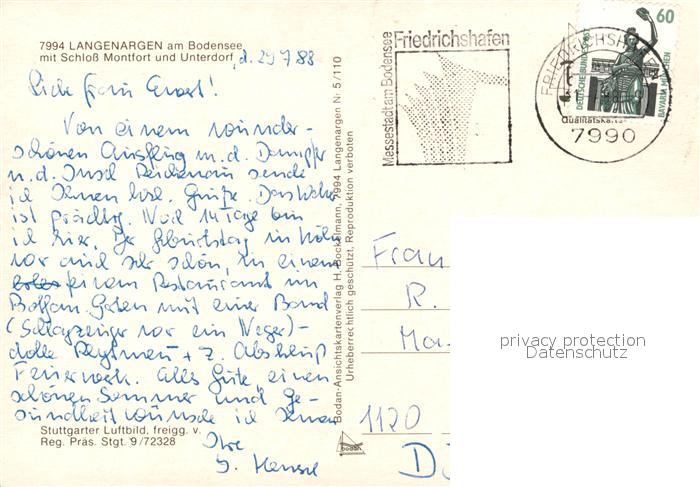 7994 LANGENARGEN am Bodensee
mit Schloß Montfort und Unterdorf
, d. 29.7.88
Liebe Frau
Von einem wunder-
schönen Ausflug m. d. Dampfer
n. d. Insel Reichenau sende
ich Ihnen herzl. Grüße. Das Wetter
ist prächtig. Weil 14 Tage bin
ich hier. Der Geburtstag in Köln
war auch sehr schön, in einem
einem Restaurant im
Botan. Garten mit einer Band
(Schlagzeuger war ein Neger) -
dolle Rhytmen + z. Abschluß
Feuerwerk. Alles Gute einen
schönen Sommer und Ge-
sundheit wünsche ich Ihnen
Ihre
Stuttgarter Luftbild, freigg. v.
Reg. Präs. Stgt. 9/72328
Bodan-Ansichtskartenverlag H. Bockelmann, 7994 Langenargen Nr. 5/110
Urheberrechtlich geschützt, Reproduktion verboten
bodan
Messestadt am Bodensee
Friedrichshafen
FRIEDRICHSHAFEN
7990
60
DEUTSCHE BUNDESPOST
BAVARIA MÜNCHEN
Qualitätskarte
Frau
R.
Ma
1120
D
privacy protection
Datenschutz